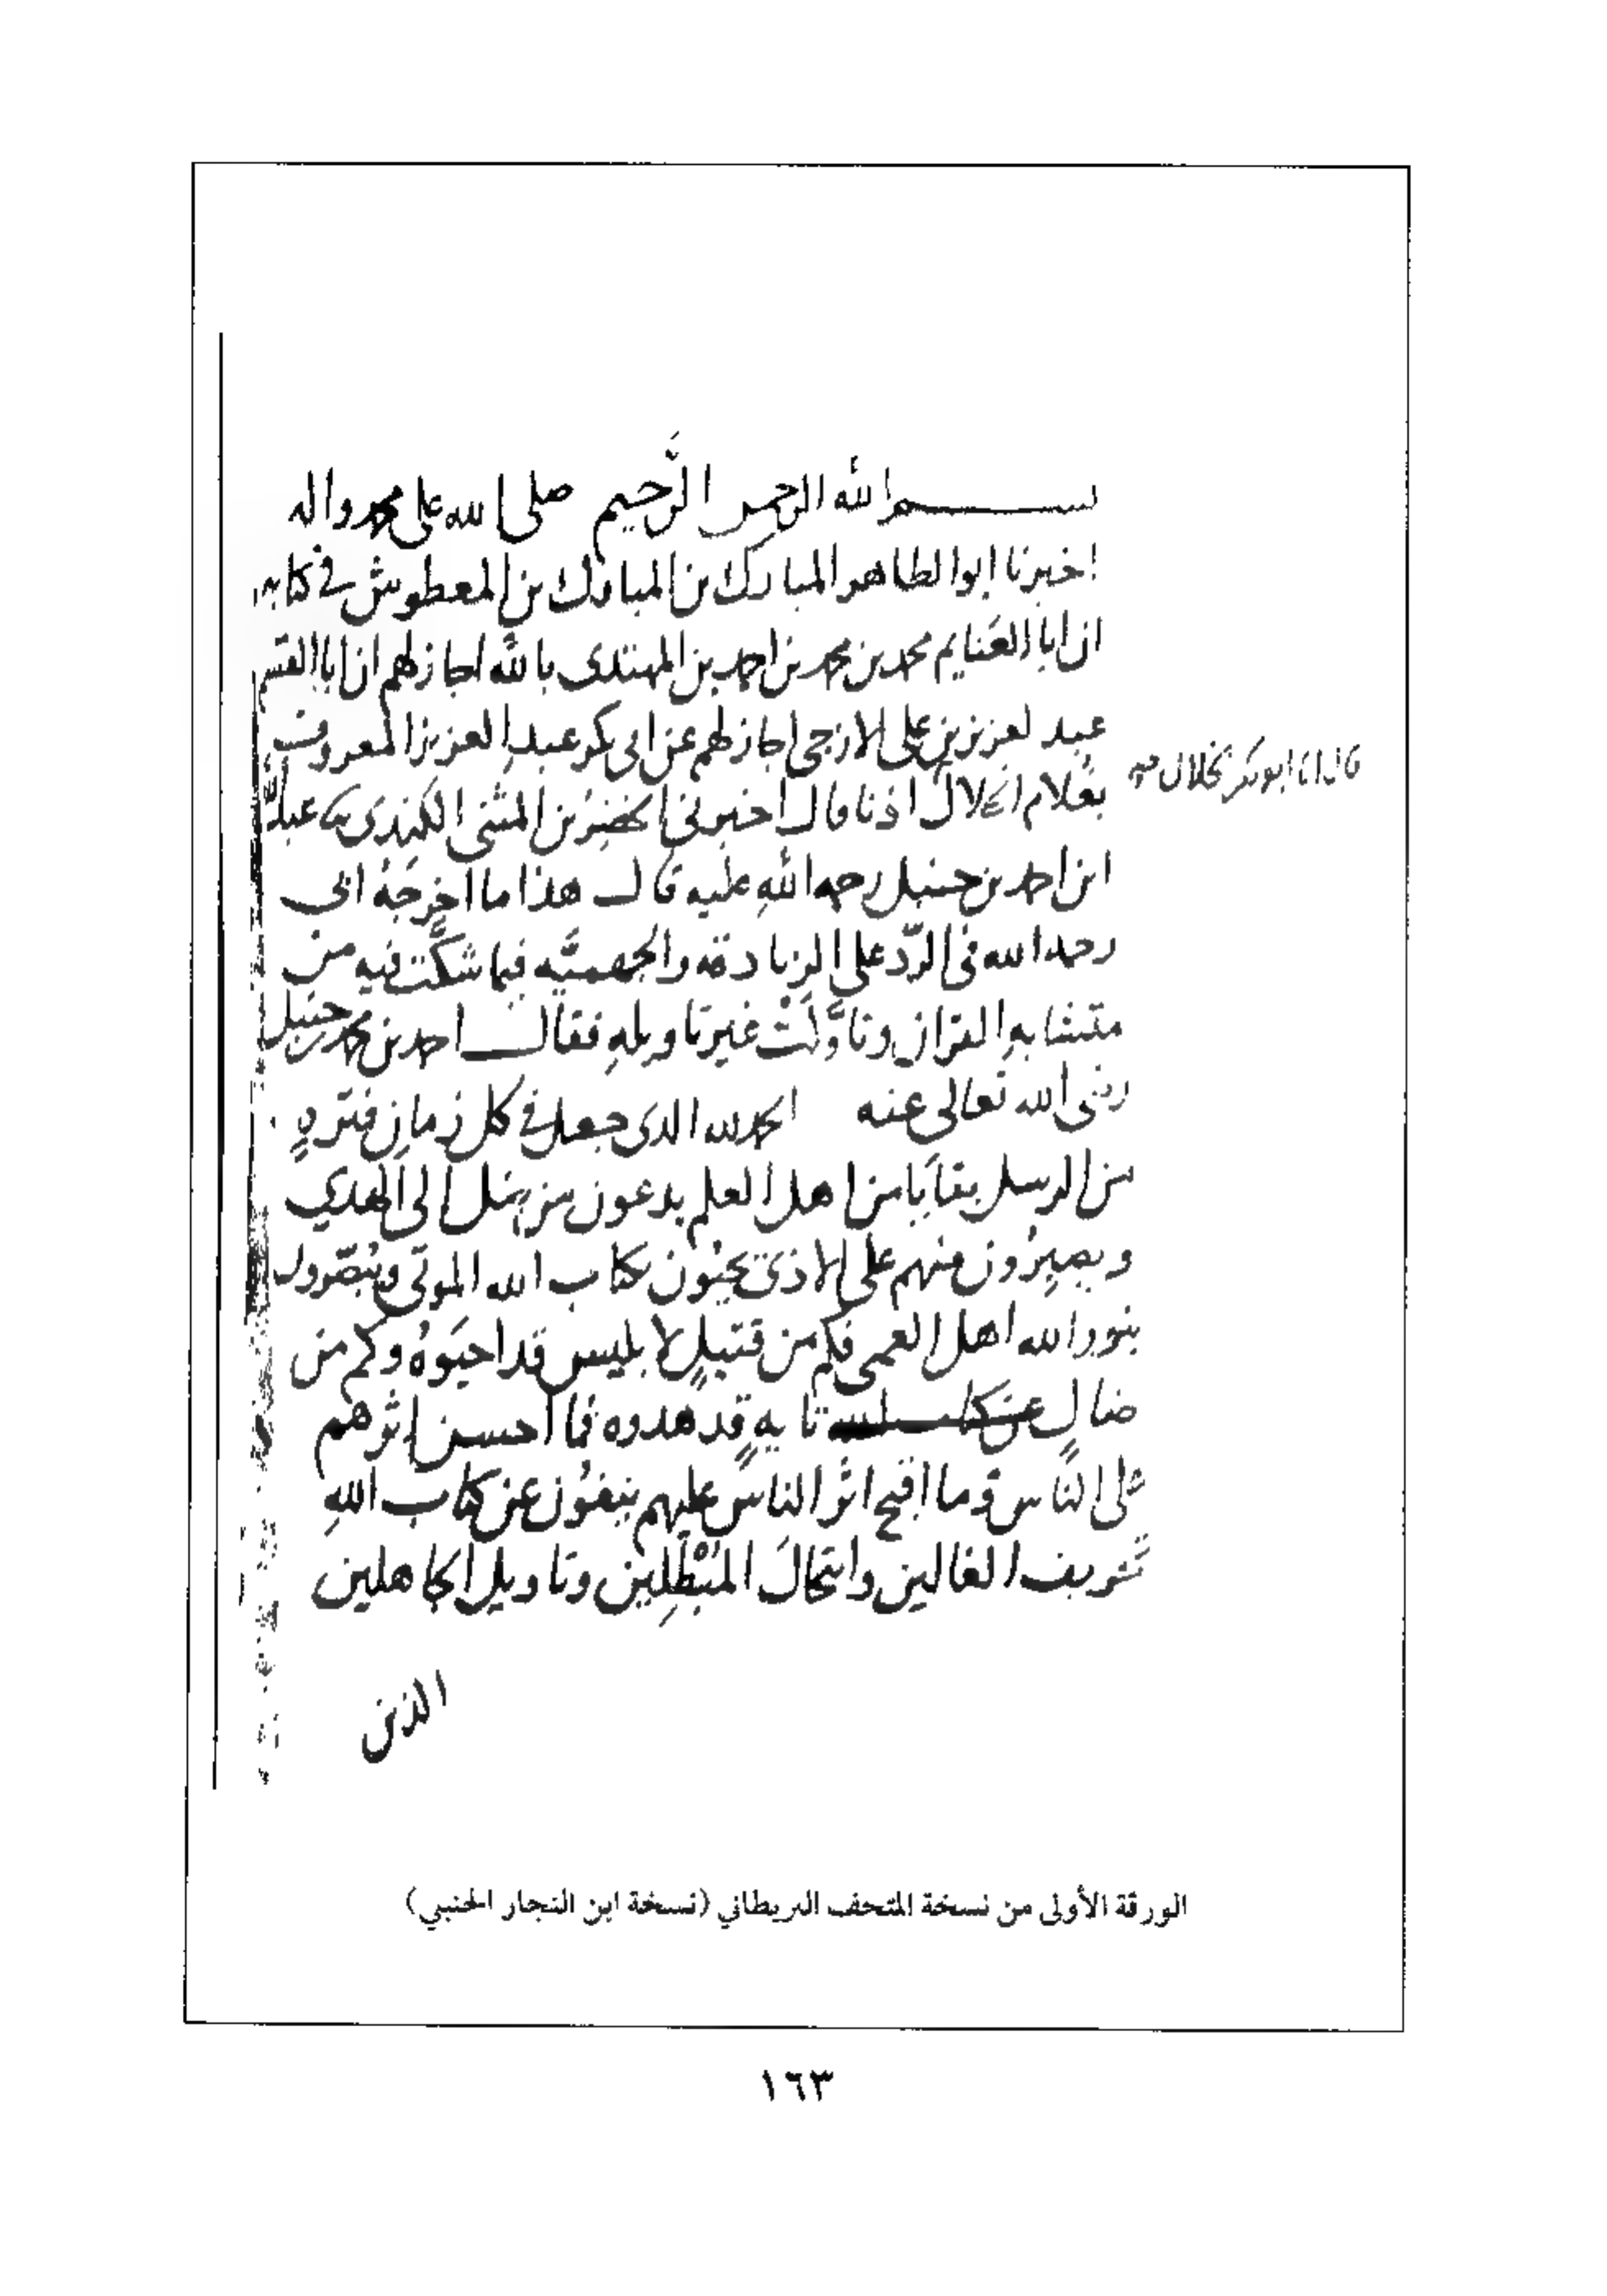 بسم الله الرحمن الرَّحيم صلى الله على محمد واله
اخبرنا ابوالطاهر المبارك بن المبارك بن المعطوش في كتابه
ان ابا الغنايم محمد بن محمد بن احمد بن المهتدى بالله اجاز لهم ان ابا القسم
عبد لعزيز بن على الازجى اجاز لهم عن ابى بكر عبد العزيز المعروف
بغلام الخلال اذنا قال اخبرنى الخضر بن المثنى الكندى عبد الله
قال انا ابو بكر الخلال
ابن احمد بن حنبل رحمه الله عليه قال هذا ما اخرجَهُ ابى
رحمه الله فى الرّد على الزنادقه والجهميَّه فيما شكَّت فيه من
متشابهِ القران وتاوَّلَتْ غير تاويلهِ فقال احمد بن محمد بن حنبل
رضى الله تعالى عنه الحمد لله الذى جعل في كل زمانِ فترهٍ
من الرسل بقايَا من اهل العلم يدعون من ضل الى الهدي
ويصبِرُون منهم على الاذىَ يحيُون بكتاب الله الموتى ويُبَصّرون
بنور الله اهل العمى فكم من قتيلٍ لابليس قد احيَوهُ وكم من
ضالٍ تايهٍ قد هدوه فما احسن اثرهم
على الناس وما اقبح اثَر الناس عليهم ينفُون عن كتاب اللهِ
تحريف الغالين وانتحالَ المُبْطِلِين وتاويل الجاهلين
الذين
الورقة الأولى من نسخة المتحف البريطاني (نسخة ابن النجار الحنبي)
١٦٣